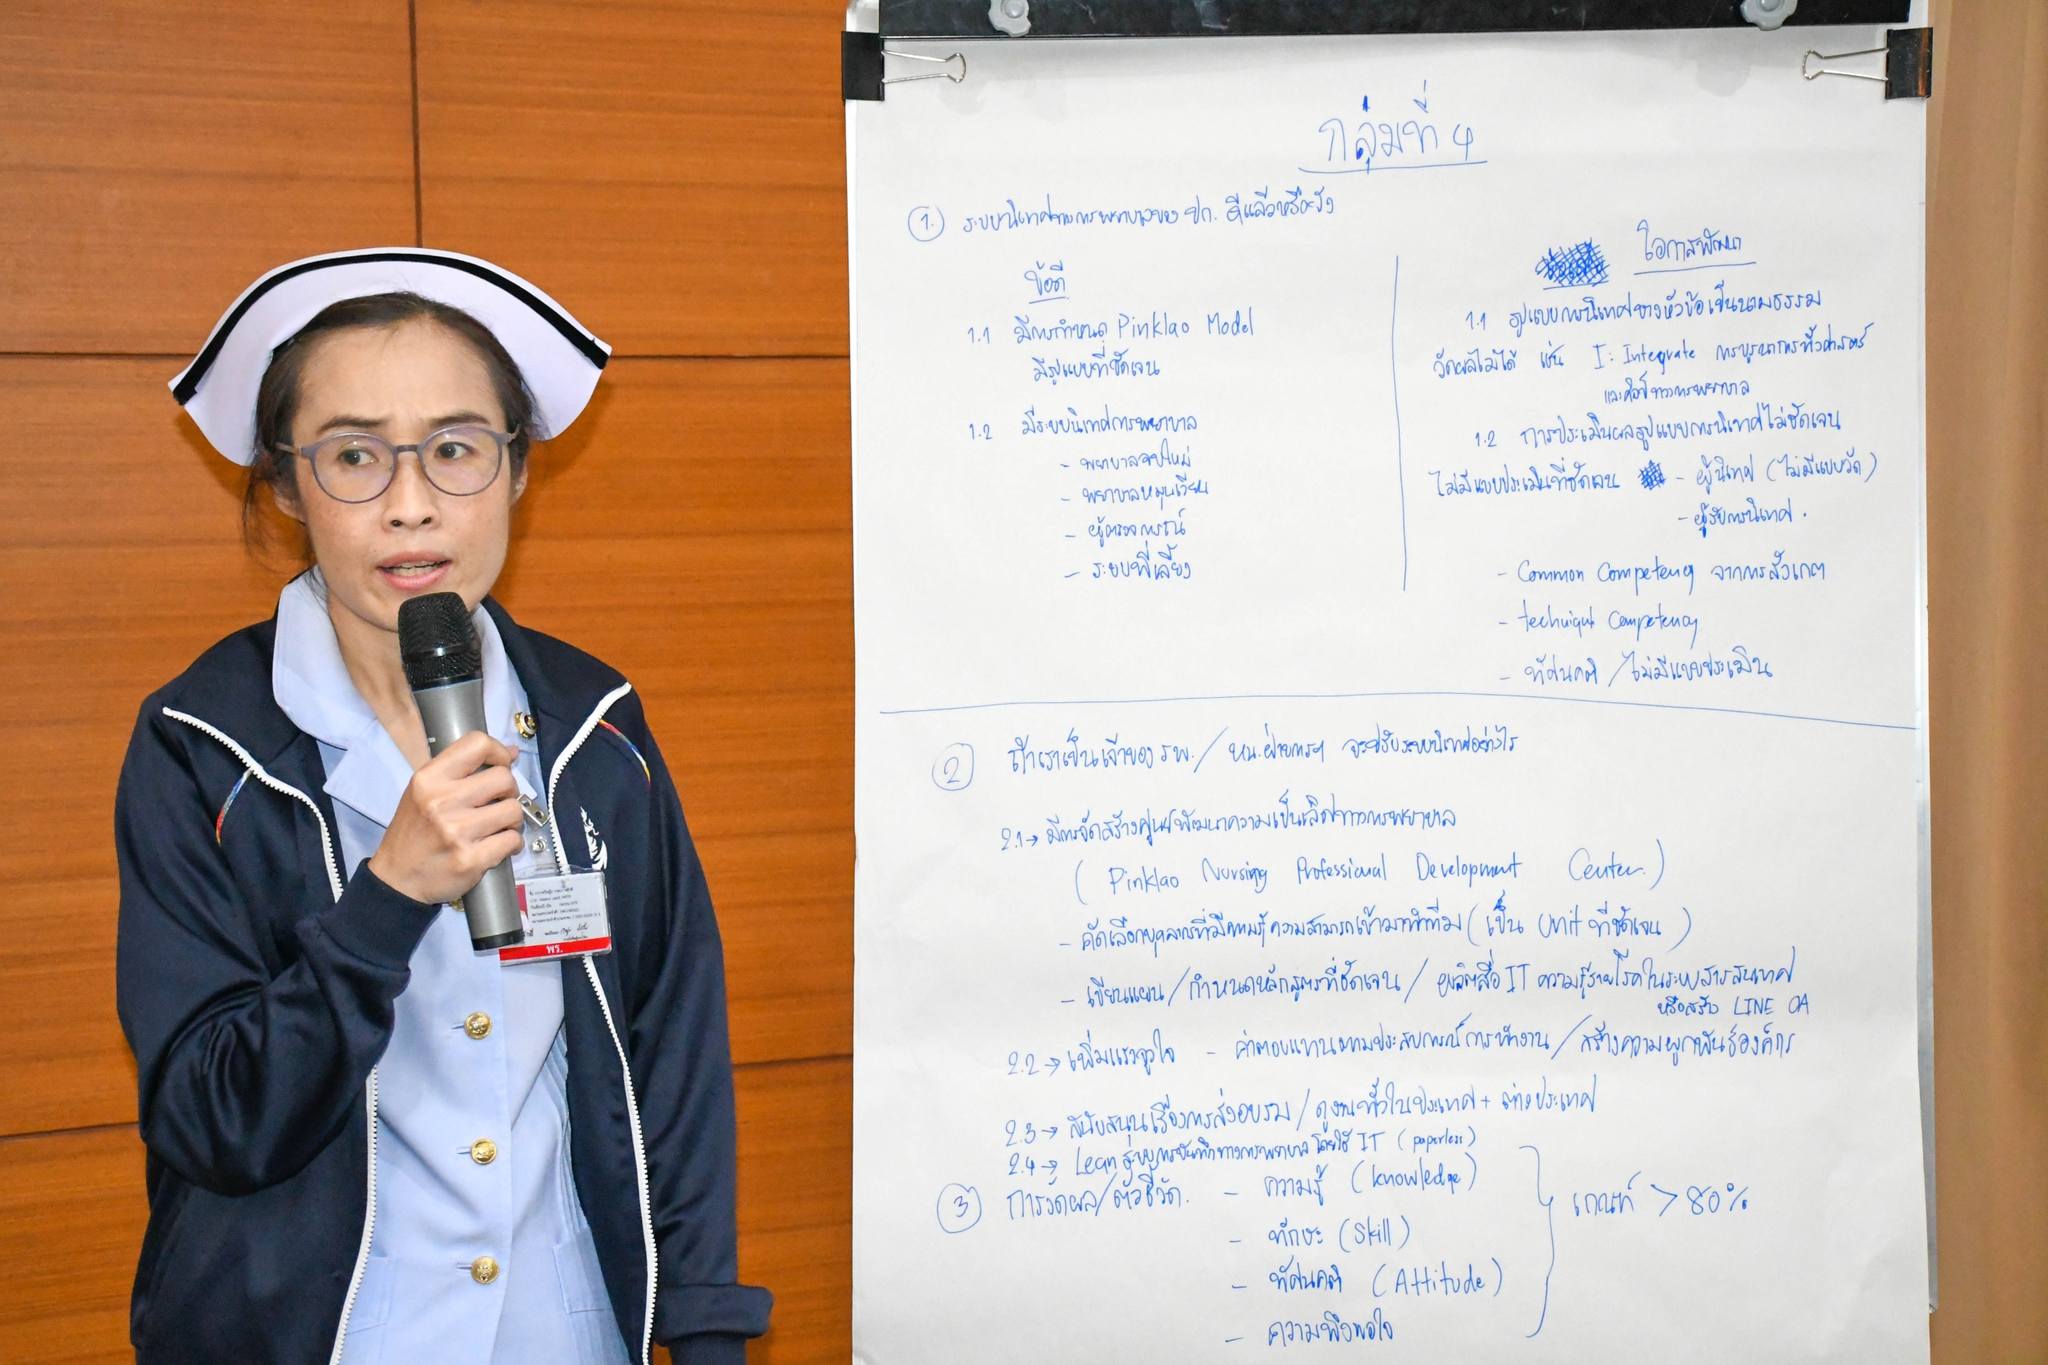 กลุ่มที่ 4
1. ระบบนิเทศทางการพยาบาลของ ปก. ดีแล้วหรือยัง
ข้อดี
1.1 มีการกำหนด Pinklao Model
มีรูปแบบที่ชัดเจน
1.2 มีระบบนิเทศการพยาบาล
- พยาบาลจบใหม่
- พยาบาลหมุนเวียน
- ผู้ตรวจการณ์
- ระบบพี่เลี้ยง
โอกาสพัฒนา
1.1 รูปแบบการนิเทศบางหัวข้อเป็นนามธรรม
วัดผลไม่ได้ เช่น I : Integrate การบูรณาการทั้งศาสตร์
และศิลป์ทางการพยาบาล
1.2 การประเมินผลรูปแบบการนิเทศไม่ชัดเจน
ไม่มีแบบประเมินที่ชัดเจน - ผู้นิเทศ (ไม่มีแบบวัด)
- ผู้รับการนิเทศ.
- Common Competency จากการสังเกต
- technique Competency
- ทัศนคติ / ไม่มีแบบประเมิน
2 ถ้าเราเป็นเจ้าของ รพ. / หน.ฝ่ายการฯ จะปรับระบบนิเทศอย่างไร
2.1 → มีการจัดสร้างศูนย์พัฒนาความเป็นเลิศทางการพยาบาล
( Pinklao Nursing Professional Development Center. )
- คัดเลือกบุคลากรที่มีความรู้ความสามารถเข้ามาทำทีม ( เป็น Unit ที่ชัดเจน )
- เขียนแผน / กำหนดหลักสูตรที่ชัดเจน / ผลิตสื่อ IT ความรู้รายโรคในระบบสารสนเทศ
หรือสร้าง LINE OA
2.2 → เพิ่มแรงจูงใจ - ค่าตอบแทนตามประสบการณ์การทำงาน / สร้างความผูกพันธ์องค์กร
2.3 → สนับสนุนเรื่องการส่งอบรม / ดูงานทั้งในประเทศ + ต่างประเทศ
2.4 → Lean ระบบการบันทึกทางการพยาบาล โดยใช้ IT (paperless)
3 การวัดผล / ตัวชี้วัด. - ความรู้ (knowledge)
- ทักษะ (Skill)
- ทัศนคติ (Attitude)
- ความพึงพอใจ
เกณฑ์ > 80%
พร.